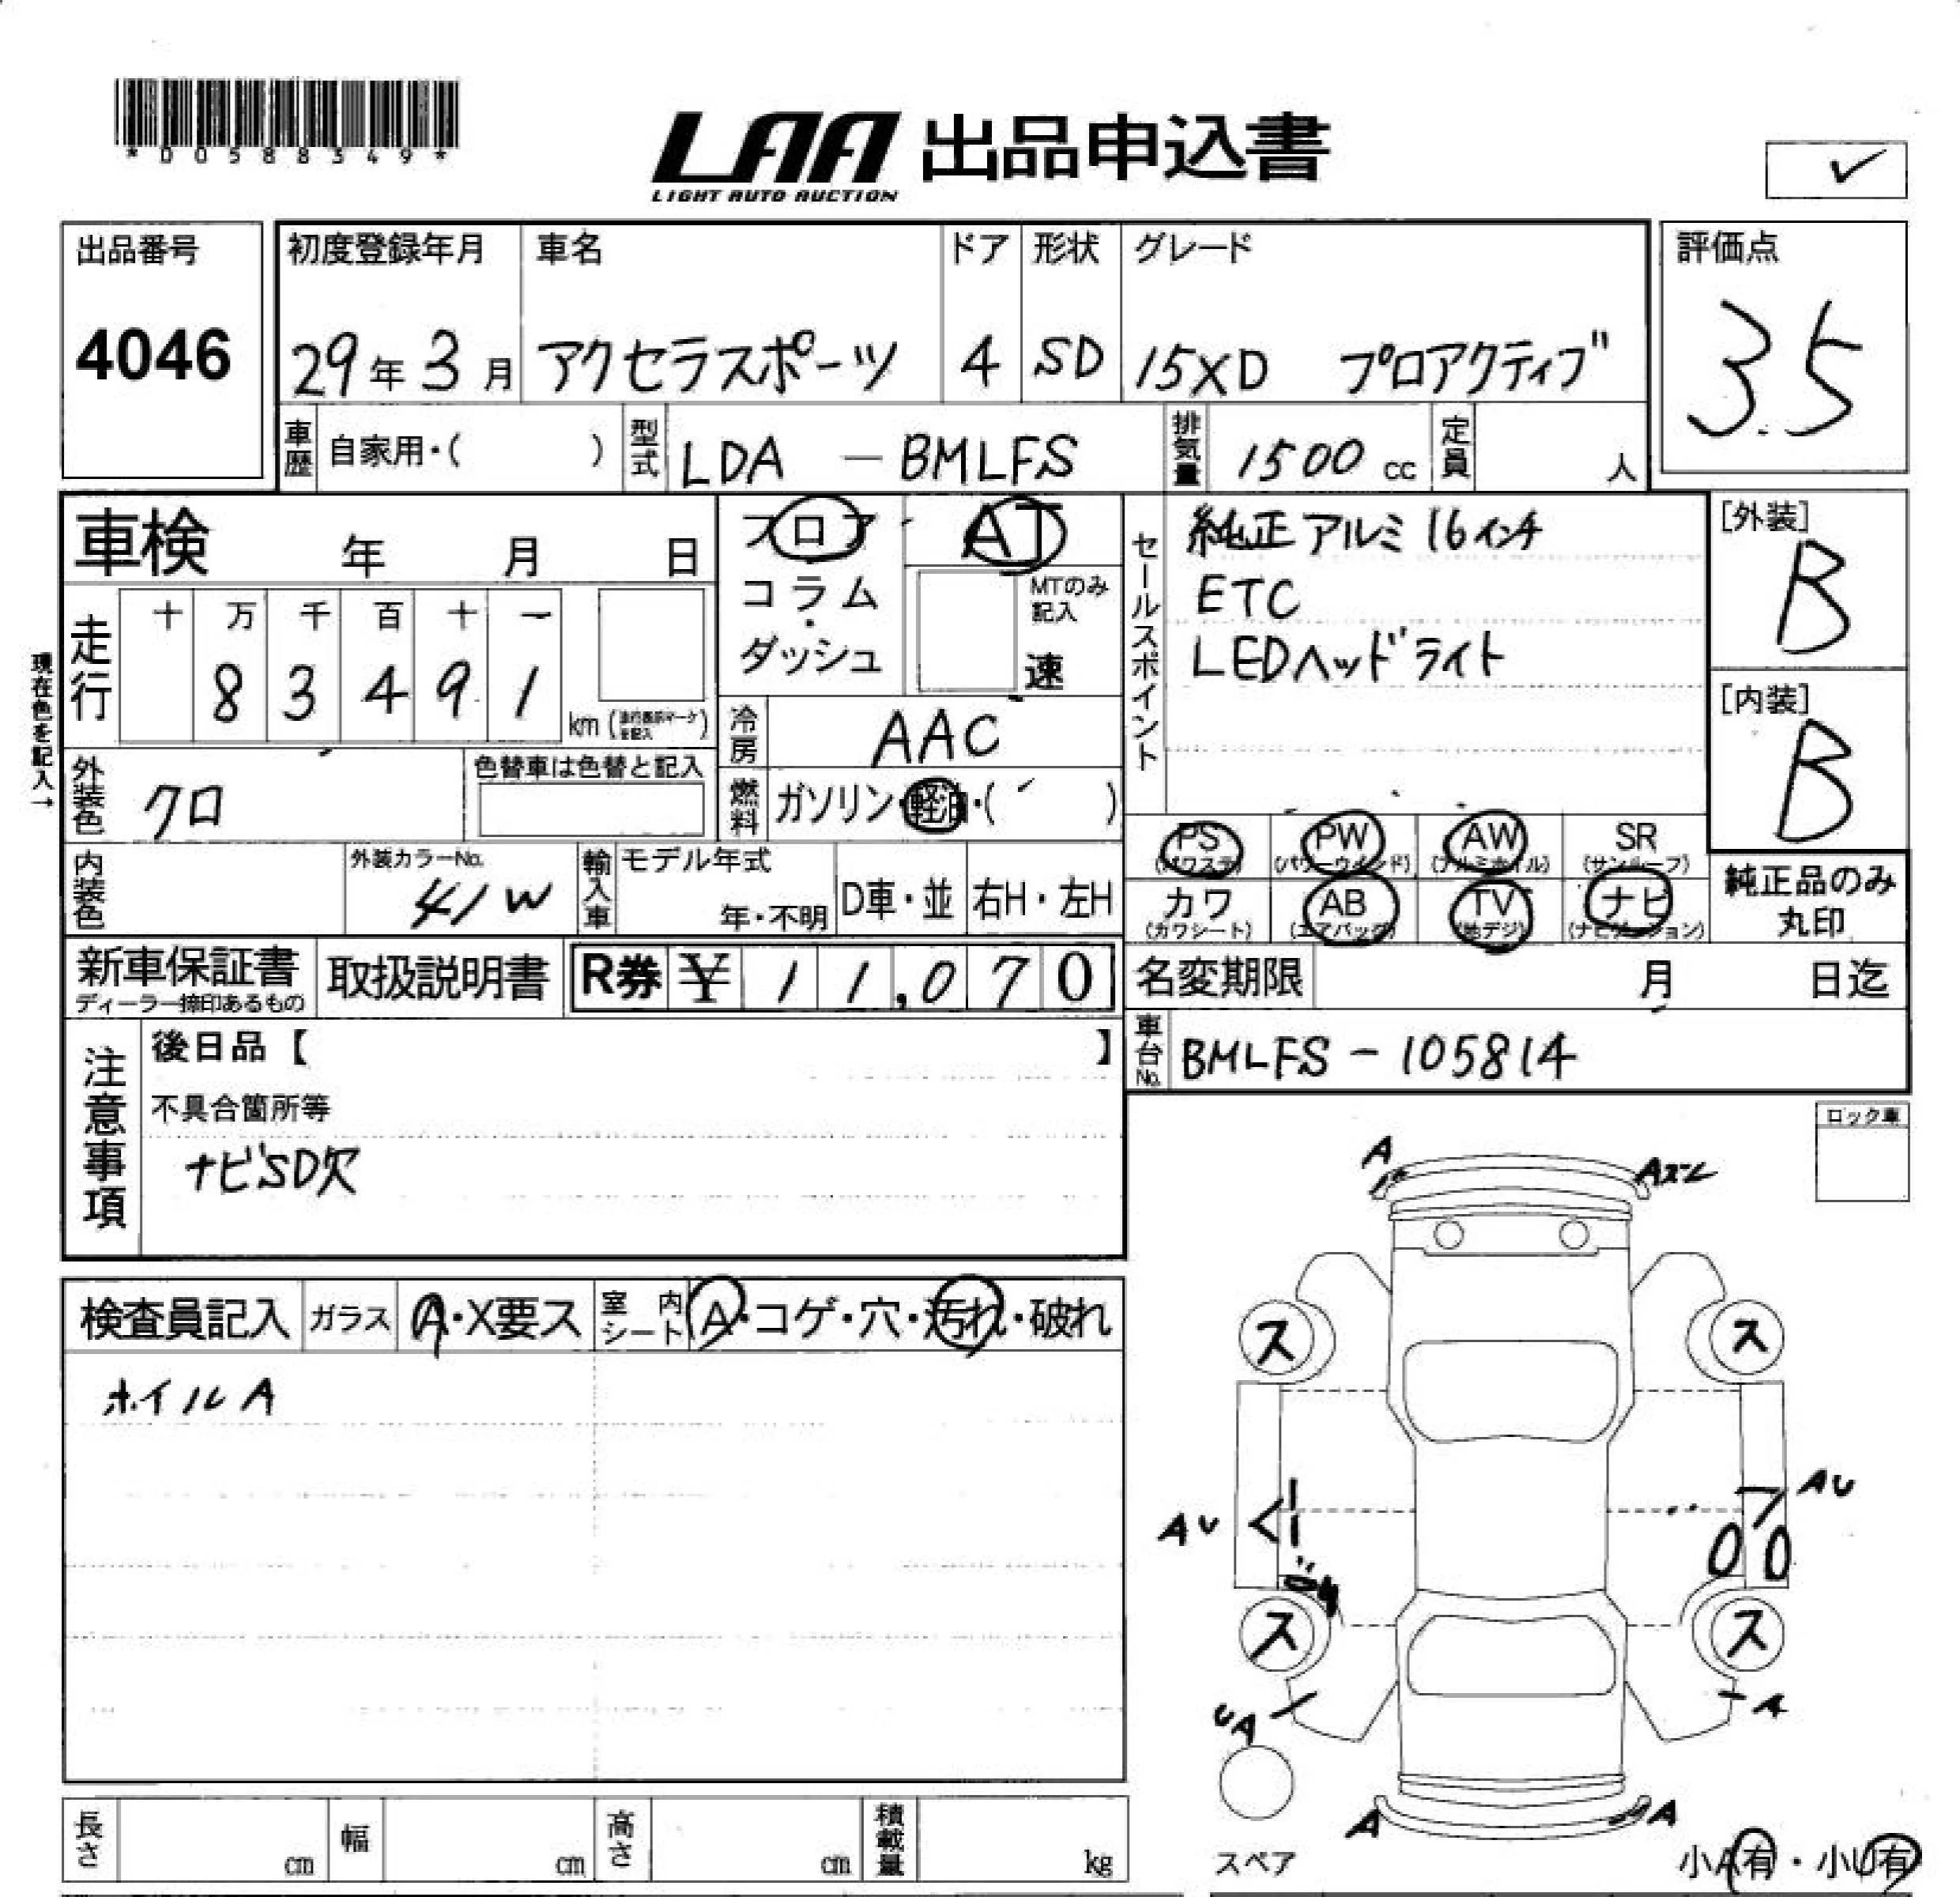 *D0588349*
LAA 出品申込書
LIGHT AUTO AUCTION
✓
出品番号
4046
初度登録年月
29年3月
車名
アクセラスポーツ
ドア
4
形状
SD
グレード
15XD プロアクティブ
評価点
3.5
車歴 自家用・( )
型式 LDA - BMLFS
排気量 1500 cc
定員 人
車検 年 月 日
フロア
コラム
・
ダッシュ
AT
MTのみ
記入
速
セールスポイント
純正アルミ16インチ
ETC
LEDヘッドライト
[外装]
B
[内装]
B
現在色を記入→
走行
十 万 千 百 十 一
8 3 4 9 1
km (走行表示マークを記入)
冷房 AAC
外装色 クロ
色替車は色替と記入
燃料 ガソリン・軽油・( )
PS PW AW SR
(パワステ) (パワーウインド) (アルミホイル) (サンルーフ)
カワ AB TV ナビ
(カワシート) (エアバッグ) (地デジ) (ナビゲーション)
純正品のみ
丸印
内装色
外装カラーNo.
41W
輸入車 モデル年式
年・不明
D車・並
右H・左H
新車保証書
ディーラー捺印あるもの
取扱説明書
R券 ¥ 11,070
名変期限 月 日迄
車台No. BMLFS - 105814
注意事項
後日品【 】
不具合箇所等
ナビSD欠
ロック車
検査員記入 ガラス A・X要ス 室内シート A・コゲ・穴・汚れ・破れ
ホイルA
A
Aズレ
ス ス
AU AU
ス ス
UA A
A A
スペア
小A有・小U有
長さ cm 幅 cm 高さ cm 積載量 kg